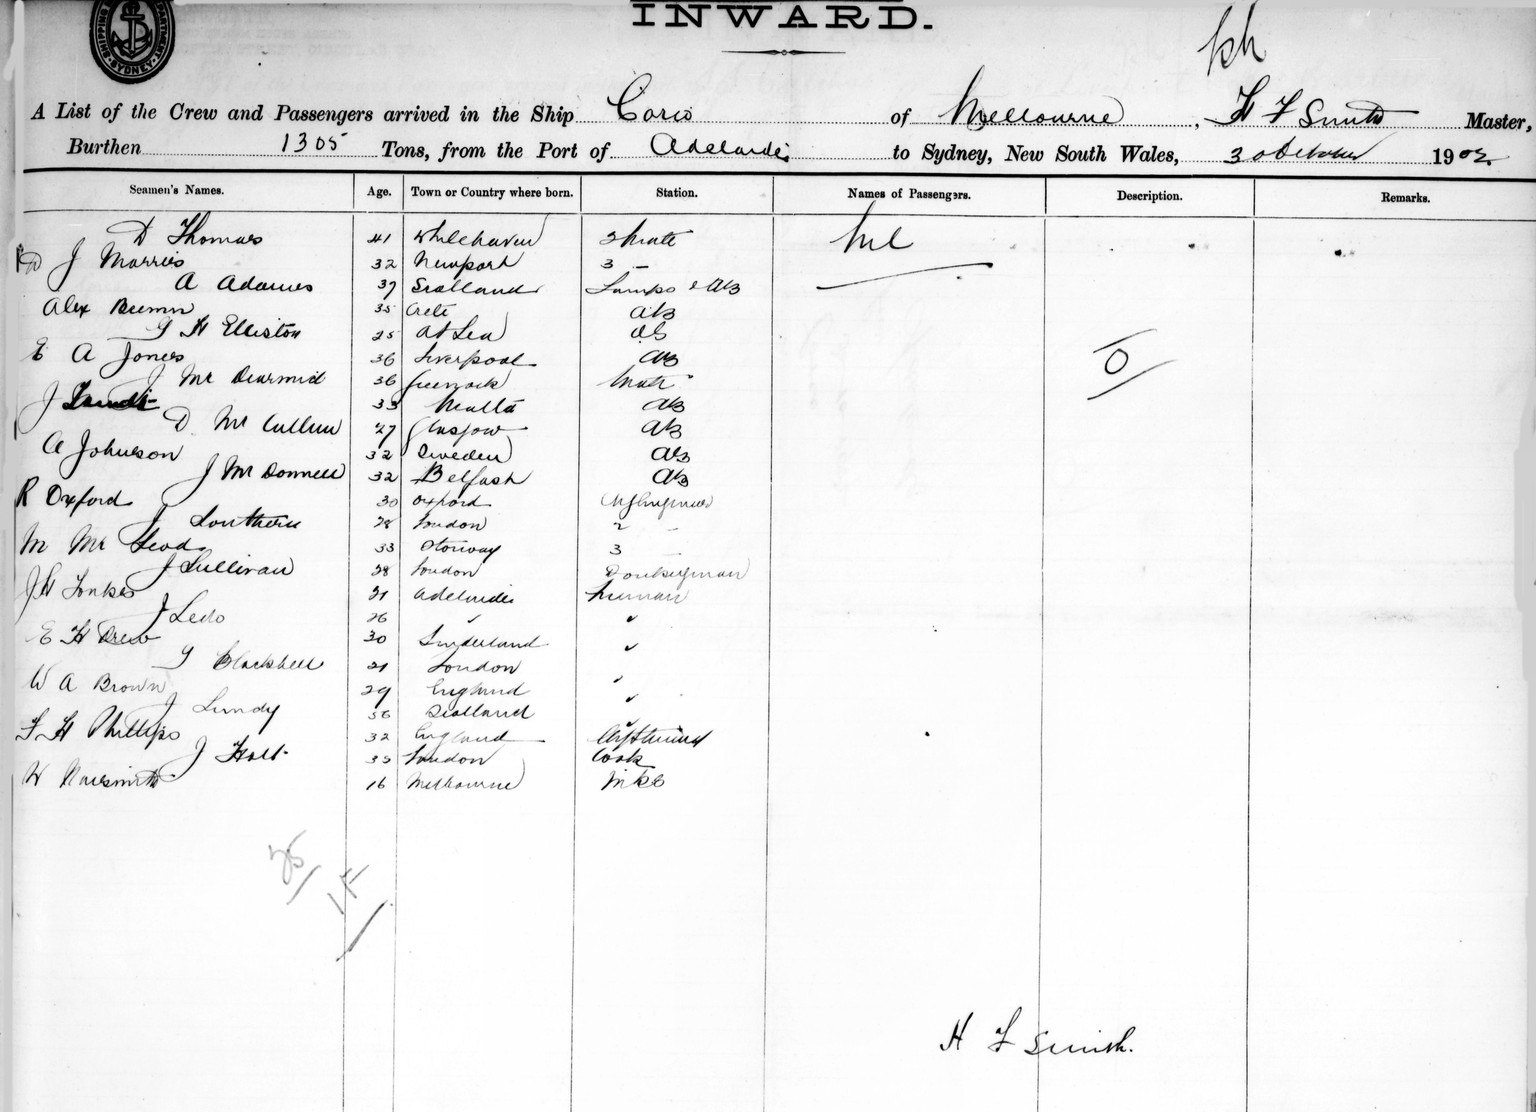 INWARD.
A List of the Crew and Passengers arrived in the Ship Corio of Melbourne, H F Smith Master,
Burthen 1305 Tons, from the Port of Adelaide to Sydney, New South Wales, 3 October 1902
Seamen's Names. Age. Town or Country where born. Station. Names of Passengers. Description. Remarks.
D Thomas 41 Whitehaven 2 Mate Nil
D J Morris 32 Newport 3 —
A Adames 37 Scotland Lamps & AB
Alex 35 Crete AB
G H Elliston 25 At Sea AB
E A Jones 36 Liverpool AB O
J Mc Dearmid 36 Greenock Mate
J 33 Malta AB
D Mc Cullum 27 Glasgow AB
A Johnson 32 Sweden AB
J Mc Donnell 32 Belfast AB
R Oxford 30 Oxford Ch Engineer
J Southern 28 London 2 —
M Mc Leod 33 Stornway 3 —
J Sullivan 28 London Donkeyman
J H 21 Adelaide Fireman
J Ledo 26 " "
E H Drew 30 Sunderland "
G Blackbell 21 London "
W A Brown 29 England "
J Lundy 36 Scotland "
F H Phillips 32 England
J Holt 35 London Cook
W Naesmith 16 Melbourne
25/
H F Smith.